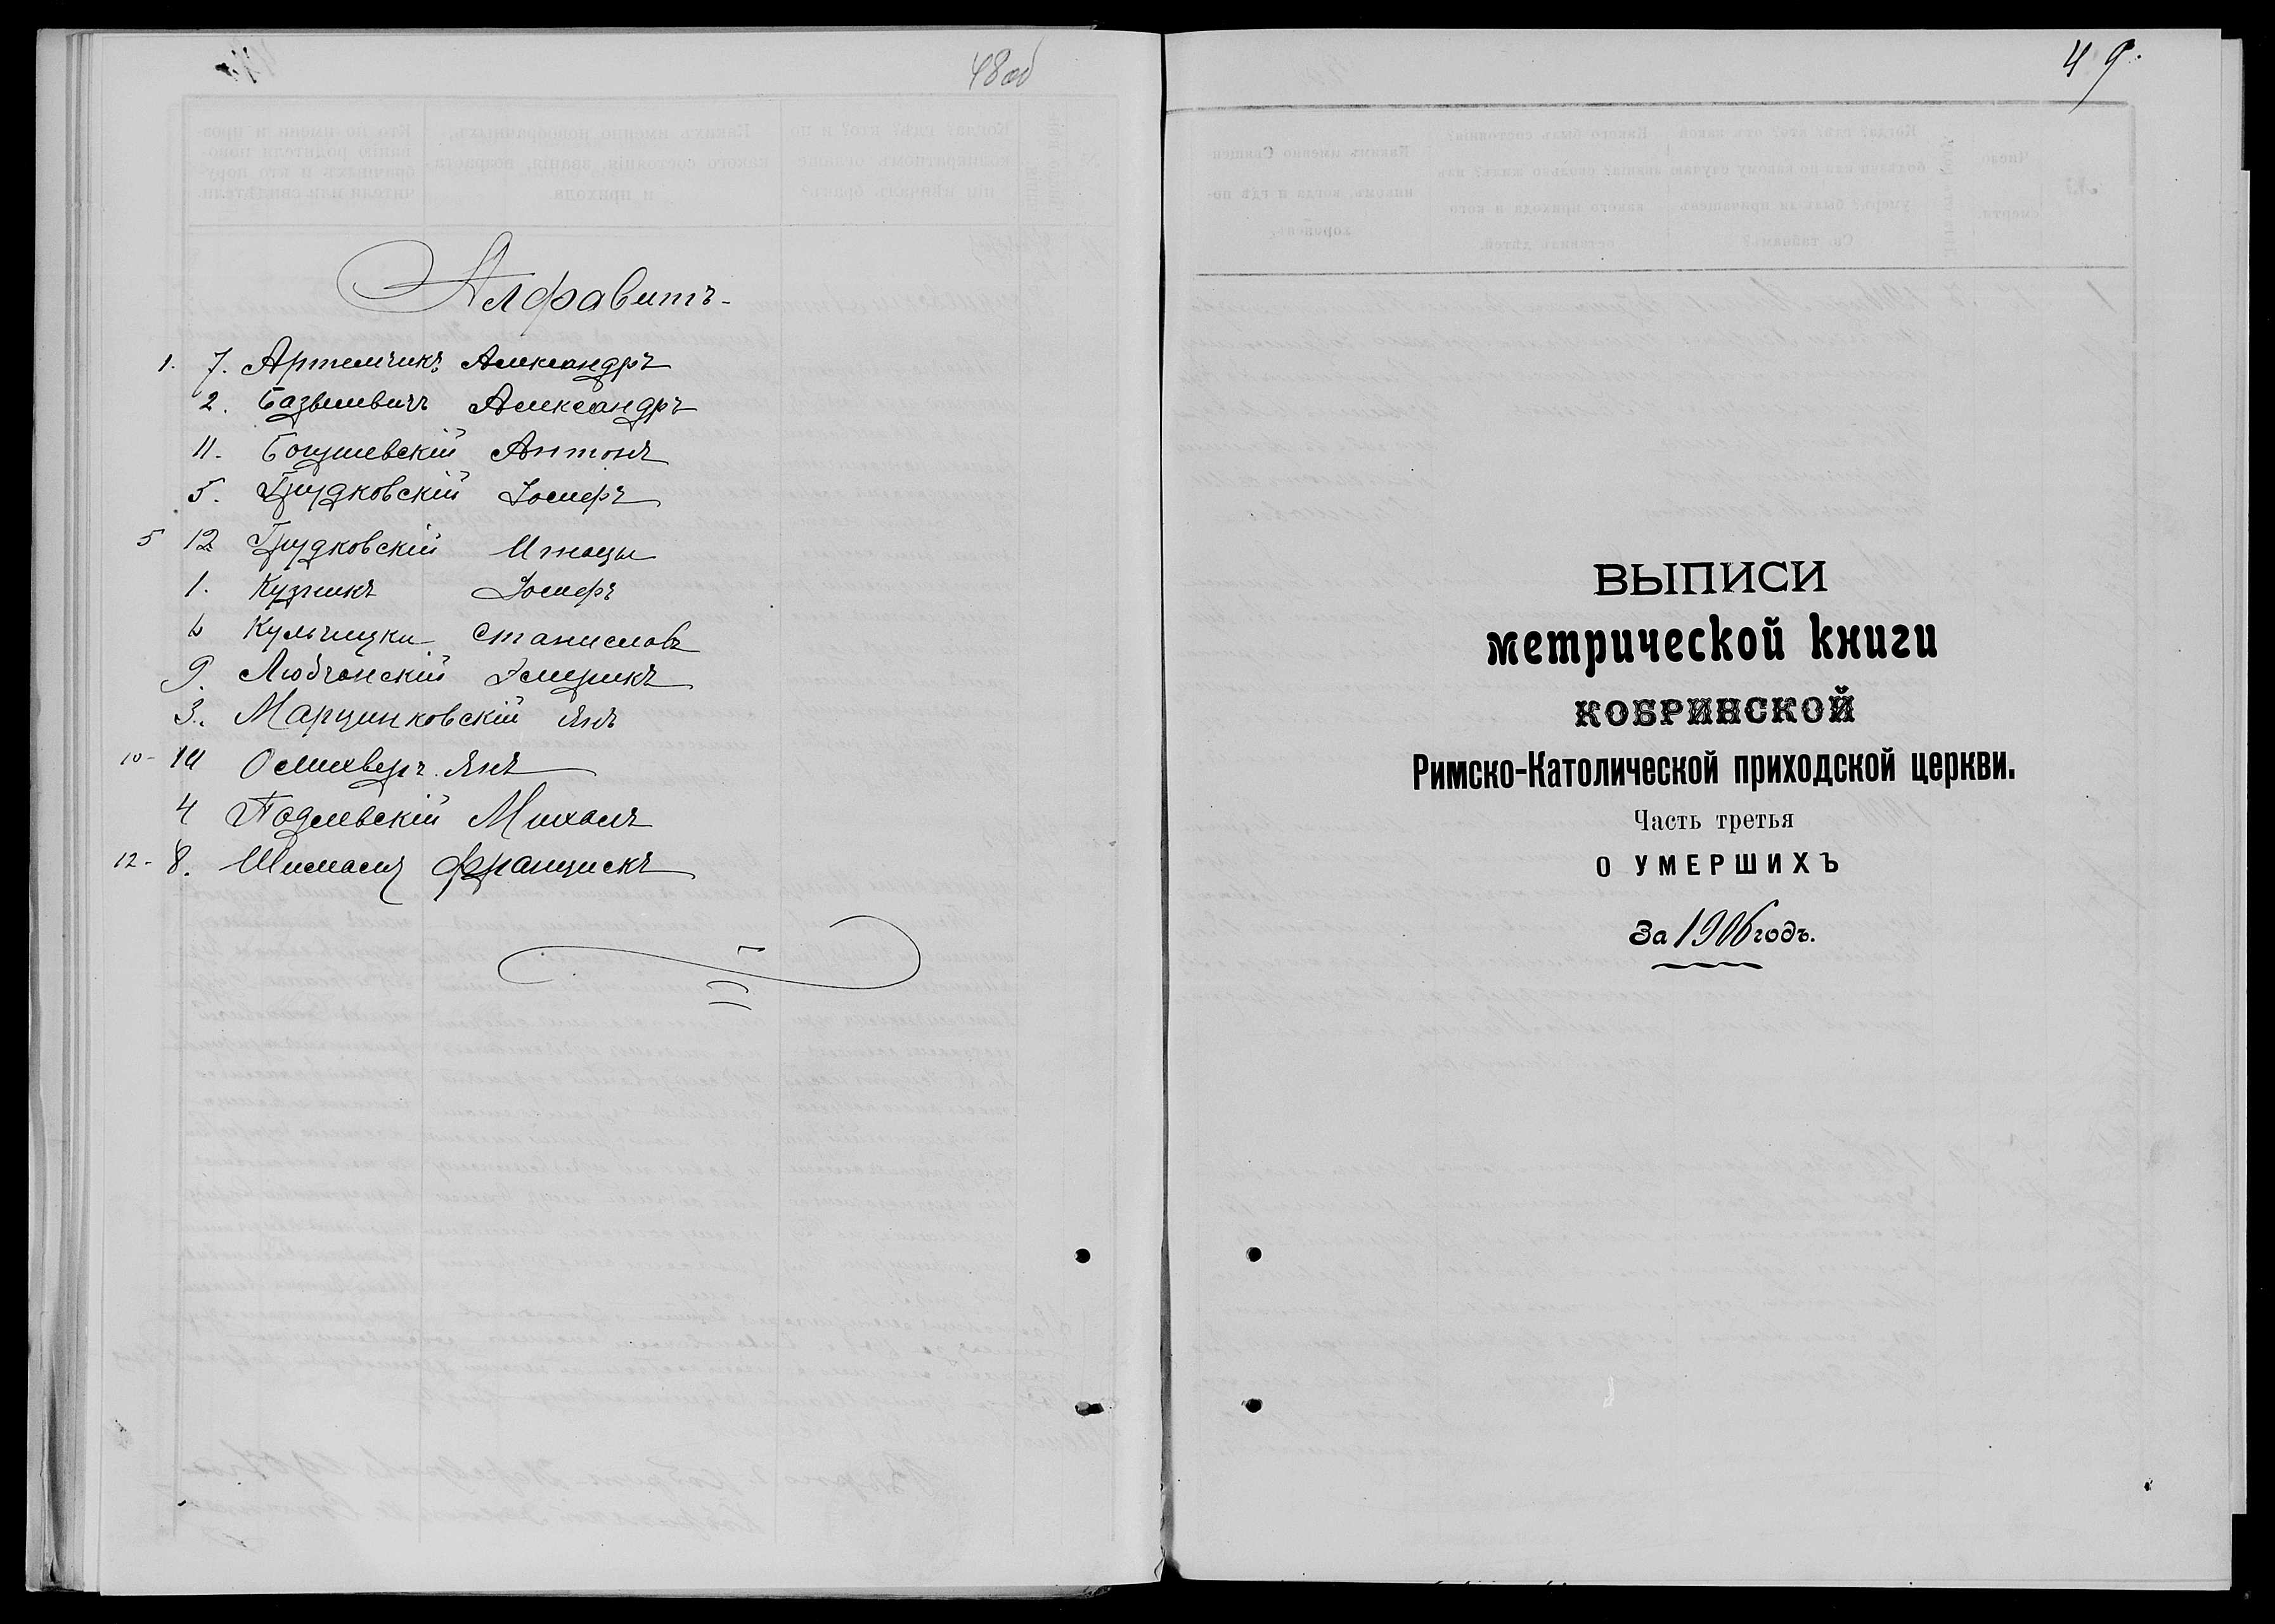 48 об
Алфавитъ
1. 7. Артемчикъ Александръ
2. Базылевичъ Александръ
11. Богушевскій Антонъ
5. Грудковскій Іосифъ
5 12 Грудковскій Игнацы
1. Іосифъ
6 Кульчицки Станиславъ
9. Генрикъ
3. Марцинковскій Янъ
10- 10 Янъ
4 Подлевскій Михалъ
12- 8. Францискъ
49.
ВЫПИСИ
метрической книги
КОБРИНСКОЙ
Римско-Католической приходской церкви.
Часть третья
О УМЕРШИХЪ
За 1906 годъ.